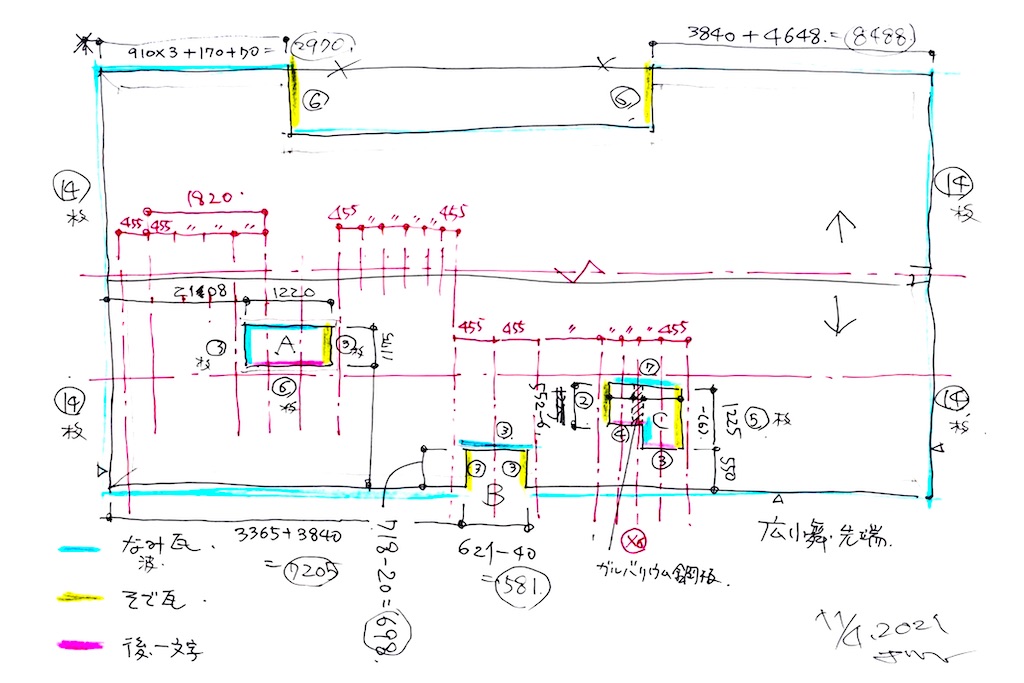 910×3+170+70=2970.
3840+4648.=8488
6
6
14 枚
14 枚
1820.
455 455 〃 〃 〃
455 〃 〃 〃 〃 455
1220
A
3 枚
枚
6 枚
14 枚
14 枚
455 455 〃 〃 〃 455
7
2
552.6
C
4
3
5 枚
1225
550
3
3 3
B
3365+3840
=7205
718-20=698.
621-40
=581.
ガルバリウム鋼板.
広小舞.先端.
なみ瓦.
波.
そで瓦.
後.一文字
11/4.2021